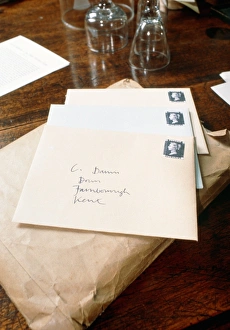 C. Darwin
Down
Farnborough
Kent